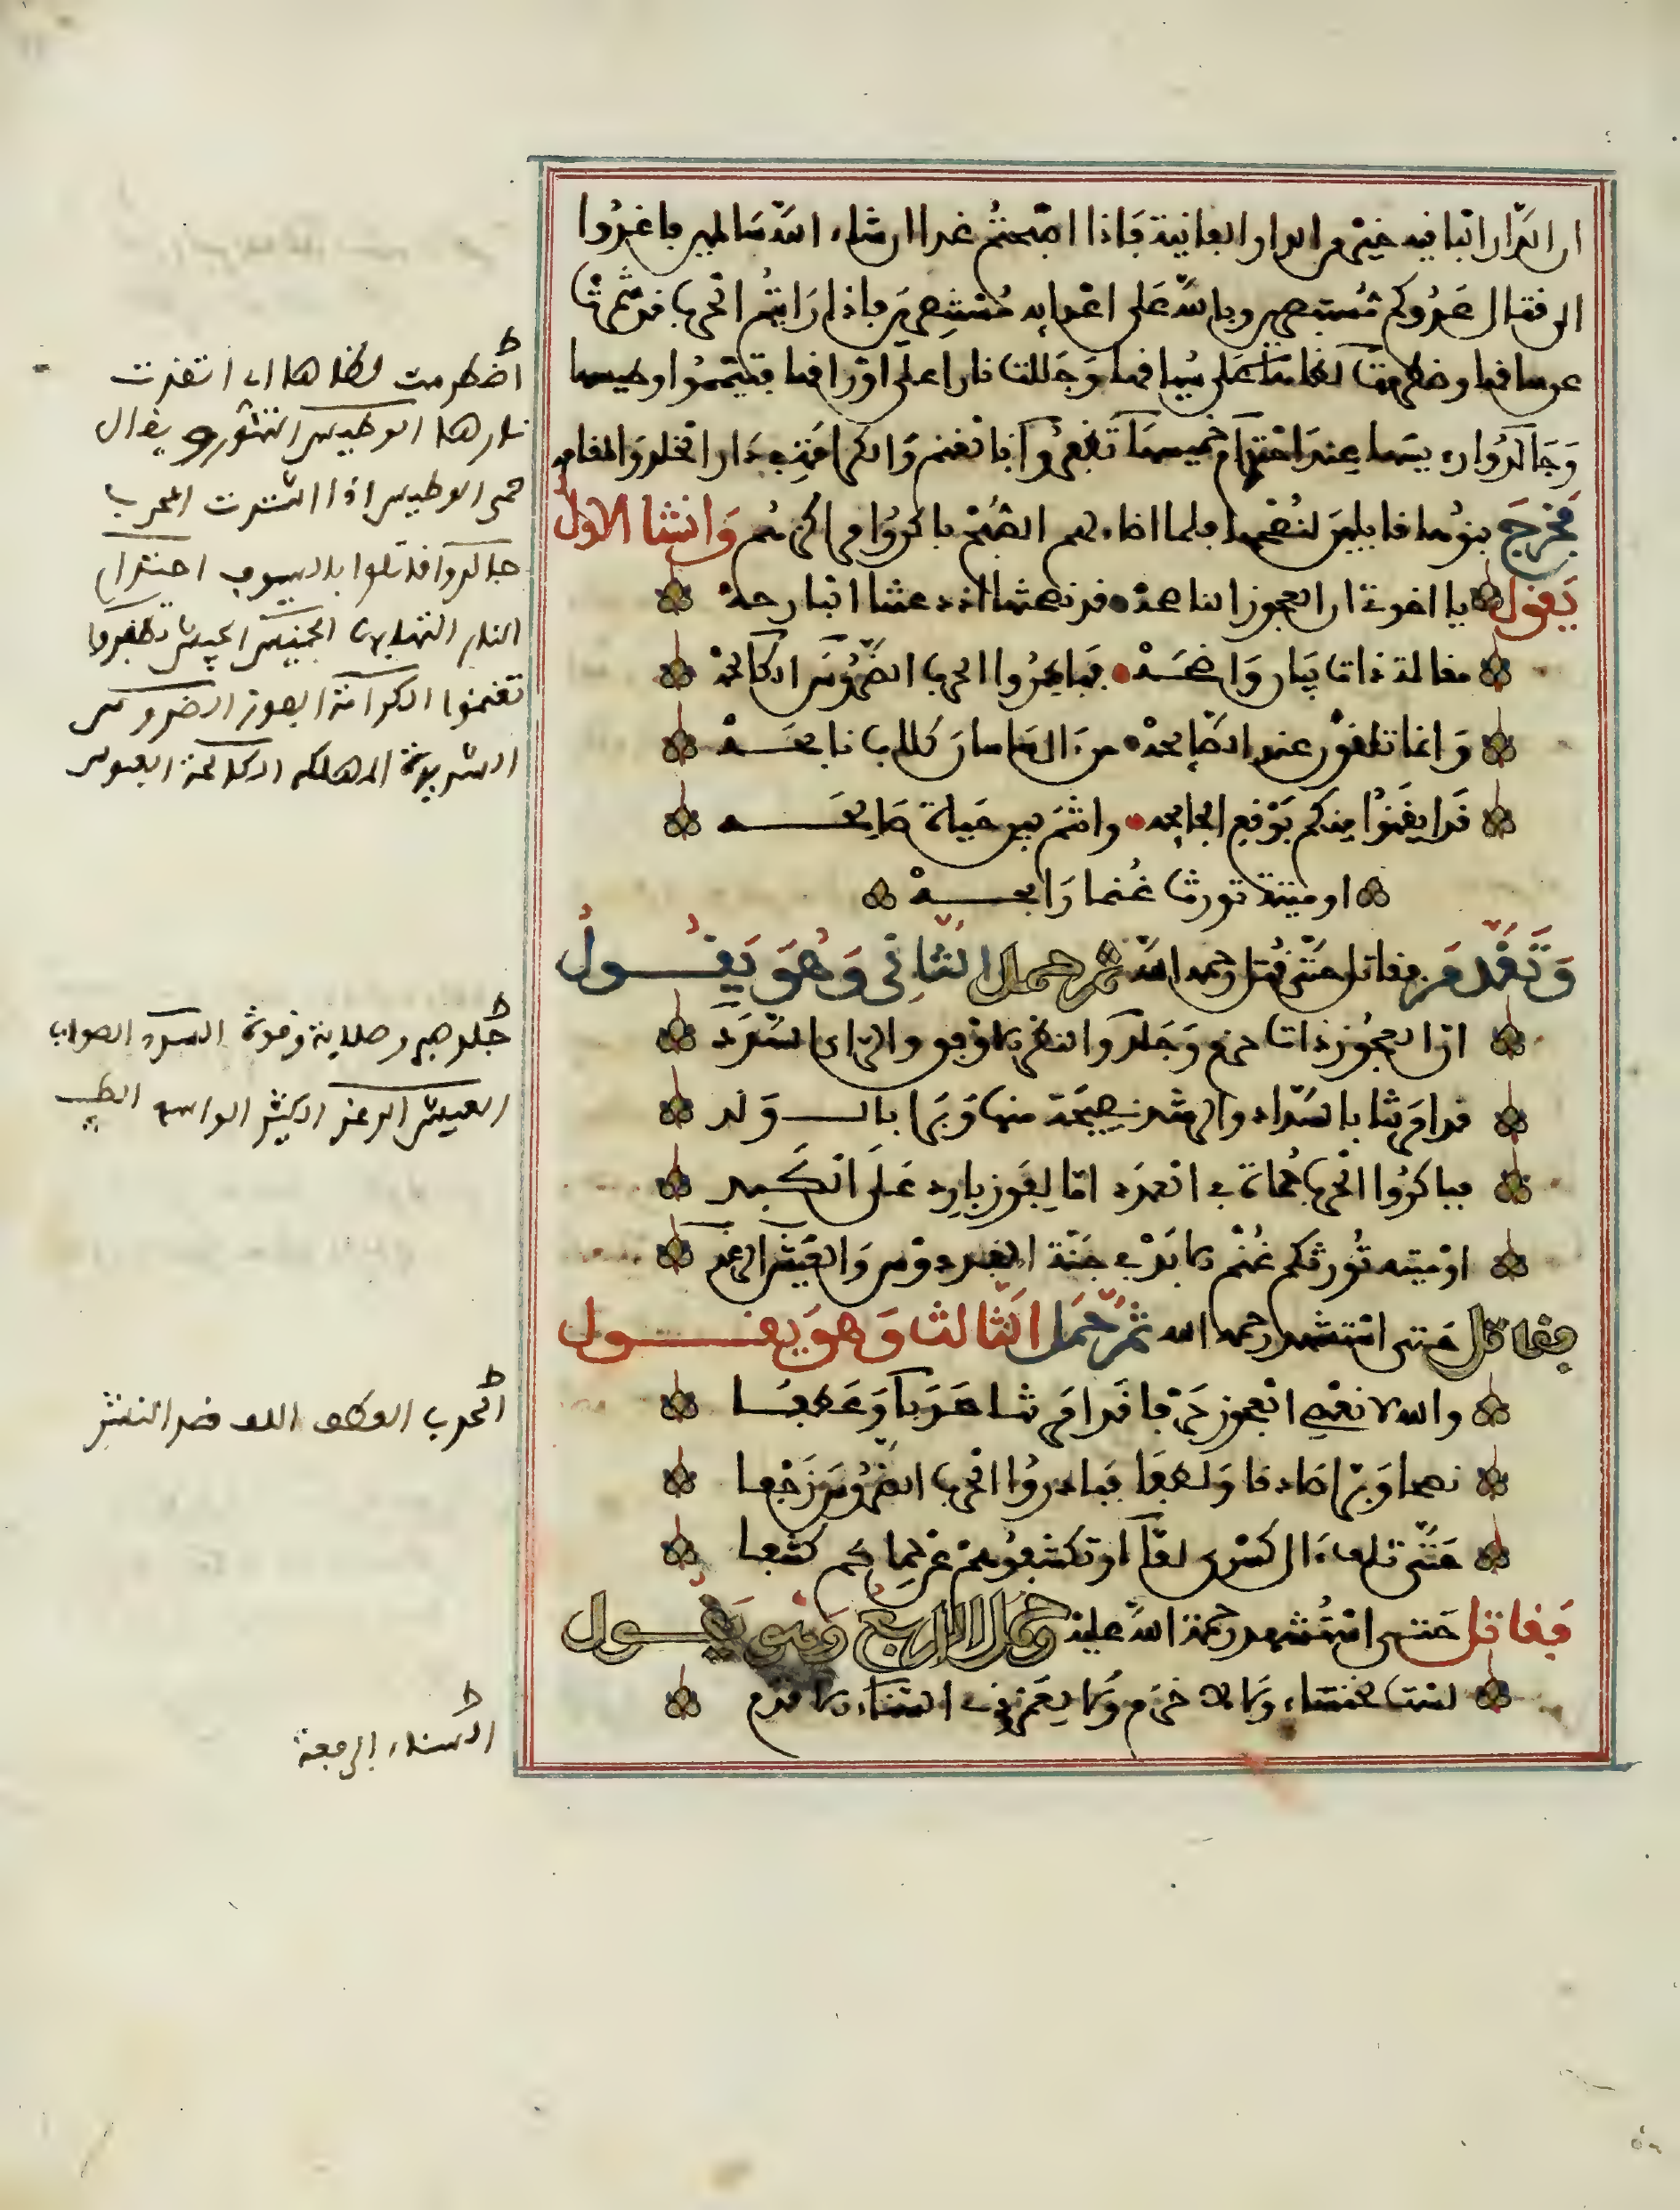 ان الدار الباقية خير من الدار الفانية فاذا اصبحتم غدا ان شاء الله سالمين فاغدوا
الى قتال عدوكم مستبصرين وبالله على اعدايه مستنصرين فاذا رايتم الحرب قد شمرت
عن ساقها واضطرمت لظاها على سياقها وجللت نارا على اوراقها فتيمموا وطيسها
وجالدوا رييسها عند احتدام خميسها تظفروا بالغنم والكرامة في دار الخلد والمقامة
فخرج بنوها قابلين لنصحها فلما اضاء لهم الصبح باكروا مراكزهم وانشا الاول
يقول يا اخوتي ان العجوز الناصحة قد نصحتنا اذ دعتنا البارحة
مقالة ذات بيان واضحة فباكروا الحرب الضروس الكالحة
وانما تلقون عند الصايحة من ءال ساسان كلاب نابحة
قد ايقنوا منكم بوقع الجايحة وانتم بين حياة صالحة
او ميتة تورث غنما رابحة
وتقدم فقاتل حتى قتل رحمه الله ثم حمل الثاني وهو يقول
ان العجوز ذات حزم وجلد والنظر الاوفق والراي السدد
قد امرتنا بالسداد والرشد نصيحة منها وبرا بالولد
فباكروا الحرب حماة في العدد اما لفوز بارد على الكبد
او ميتة تورثكم غنم الابد في جنة الفردوس والعيش الرغد
فقاتل حتى استشهد رحمه الله ثم حمل الثالث وهو يقول
والله لا نعصي العجوز حرفا قد امرتنا حدبا وعطفا
نصحا وبرا صادقا ولطفا فبادروا الحرب الضروس زحفا
حتى تلفوا ءال كسرى لفا او تكشفوهم عن حماكم كشفا
فقاتل حتى استشهد رحمة الله عليه وحمل الرابع وهو يقول
لست لخنساء ولا لاخرم ولا لعمرو ذي السناء الاقدم
ط
اضطرمت لظاها اي اتقدت
نارها الوطيس التنور ويقال
حمي الوطيس اذا اشتدت الحرب
جالدوا قاتلوا بالسيوف احتدام
النار التهابها الخميس الجيش تظفروا
تغنموا الكرامة الفوز الضروس
الشديدة المهلكة الكالحة العبوس
ط
جلد صبر وصلابة وقوة السدد الصواب
العيش الرغد الكثير الواسع الطيب
ط
الحدب العطف اللف ضد النشر
ط
السناء الرفعة